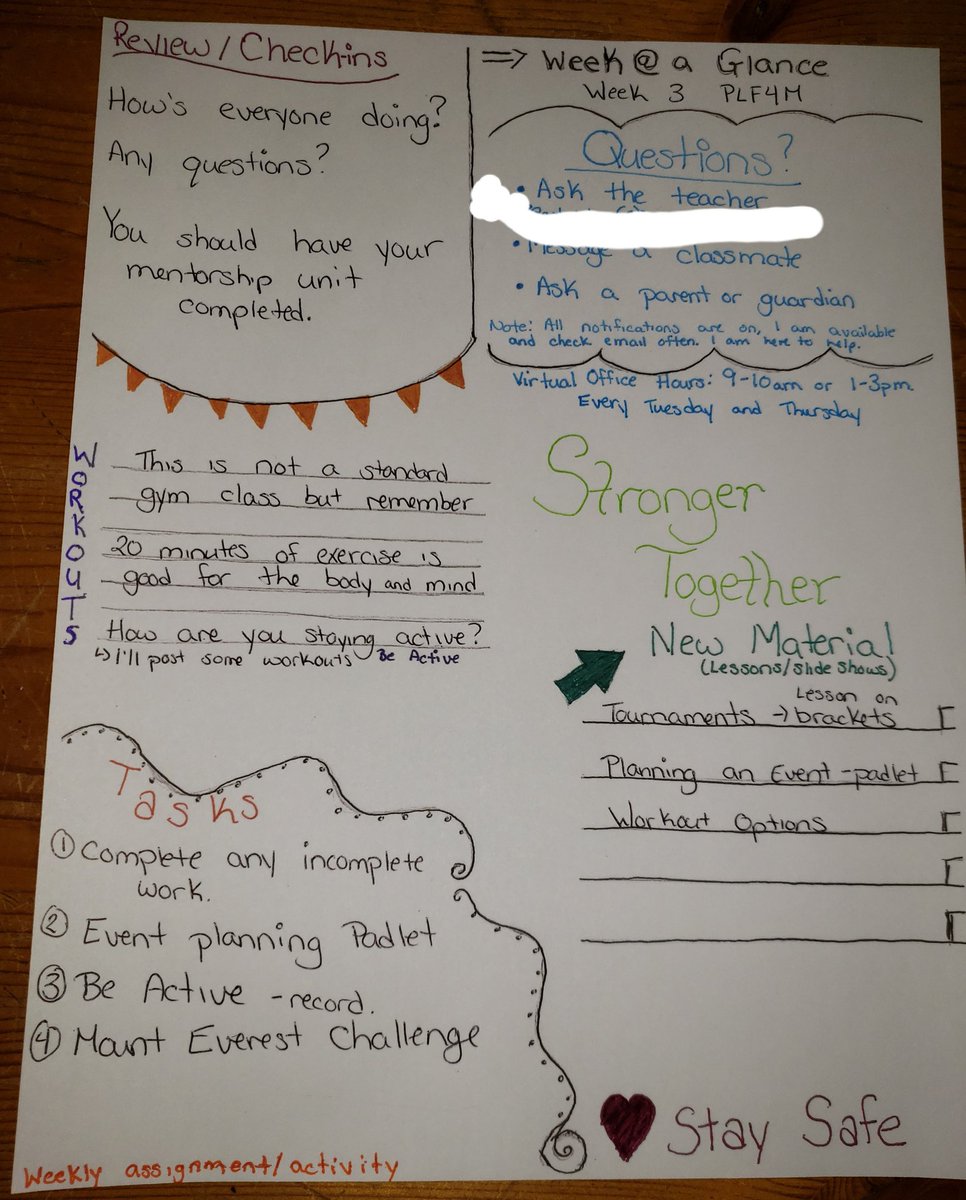 Review/Check-ins
How's everyone doing?
Any questions?
You should have your
mentorship unit
completed.
⇒ Week @ a Glance
Week 3 PLF4M
Questions?
• Ask the teacher
• Message a classmate
• Ask a parent or guardian
Note: All notifications are on, I am available
and check email often. I am here to help.
Virtual Office Hours: 9-10am or 1-3pm
Every Tuesday and Thursday
WORKOUTS
This is not a standard
gym class but remember
20 minutes of exercise is
good for the body and mind
How are you staying active?
↳ I'll post some workouts Be Active
Stronger
Together
New Material
(Lessons/Slide Shows)
Lesson on
Tournaments → brackets
Planning an Event - padlet
Workout Options
Tasks
① Complete any incomplete
work.
② Event planning Padlet
③ Be Active - record.
④ Mount Everest Challenge
Weekly assignment/activity
♥ Stay Safe